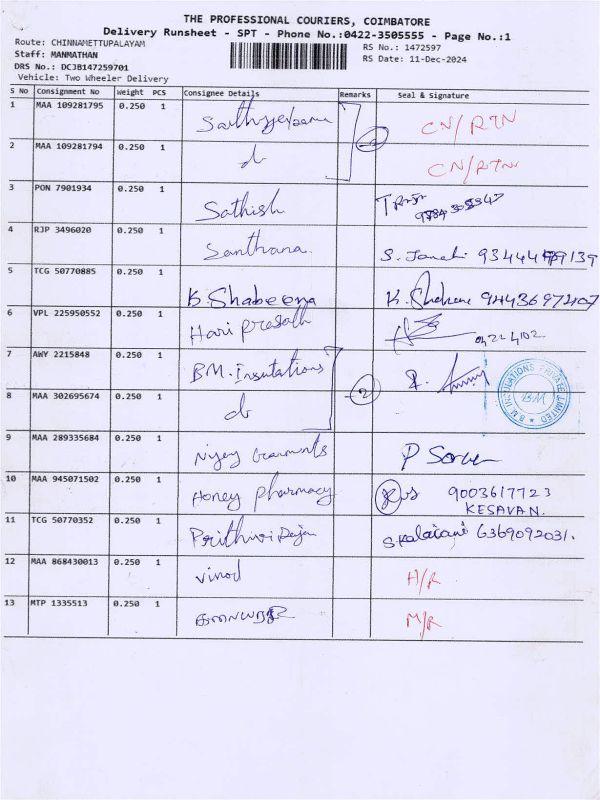 THE PROFESSIONAL COURIERS, COIMBATORE
Delivery Runsheet - SPT - Phone No.:0422-3505555 - Page No.:1
Route: CHINNAMETTUPALAYAM
RS No.: 1472597
Staff: MANMATHAN
RS Date: 11-Dec-2024
DRS No.: DCJB147259701
Vehicle: Two Wheeler Delivery
S No Consignment No Weight PCS Consignee Details Remarks Seal & Signature
1 MAA 109281795 0.250 1 CN/RTN
2 MAA 109281794 0.250 1 CN/RTN
3 PON 7901934 0.250 1 Sathish
4 RJP 3496020 0.250 1 Santhana S. Janaki
5 TCG 50770885 0.250 1 K. Shabeena K. 9443697407
6 VPL 225950552 0.250 1 Hari prasath
7 AWY 2215848 0.250 1 B.M. Insulations
8 MAA 302695674 0.250 1 2
B.M INSULATIONS PRIVATE LIMITED
B M
9 MAA 289335684 0.250 1 Garments P
10 MAA 945071502 0.250 1 Honey pharmacy 9003617723
KESAVAN.
11 TCG 50770352 0.250 1 Prithivi Rajan S.Kalaivani 6369092031.
12 MAA 868430013 0.250 1 vinod H/R
13 MTP 1335513 0.250 1 M/R